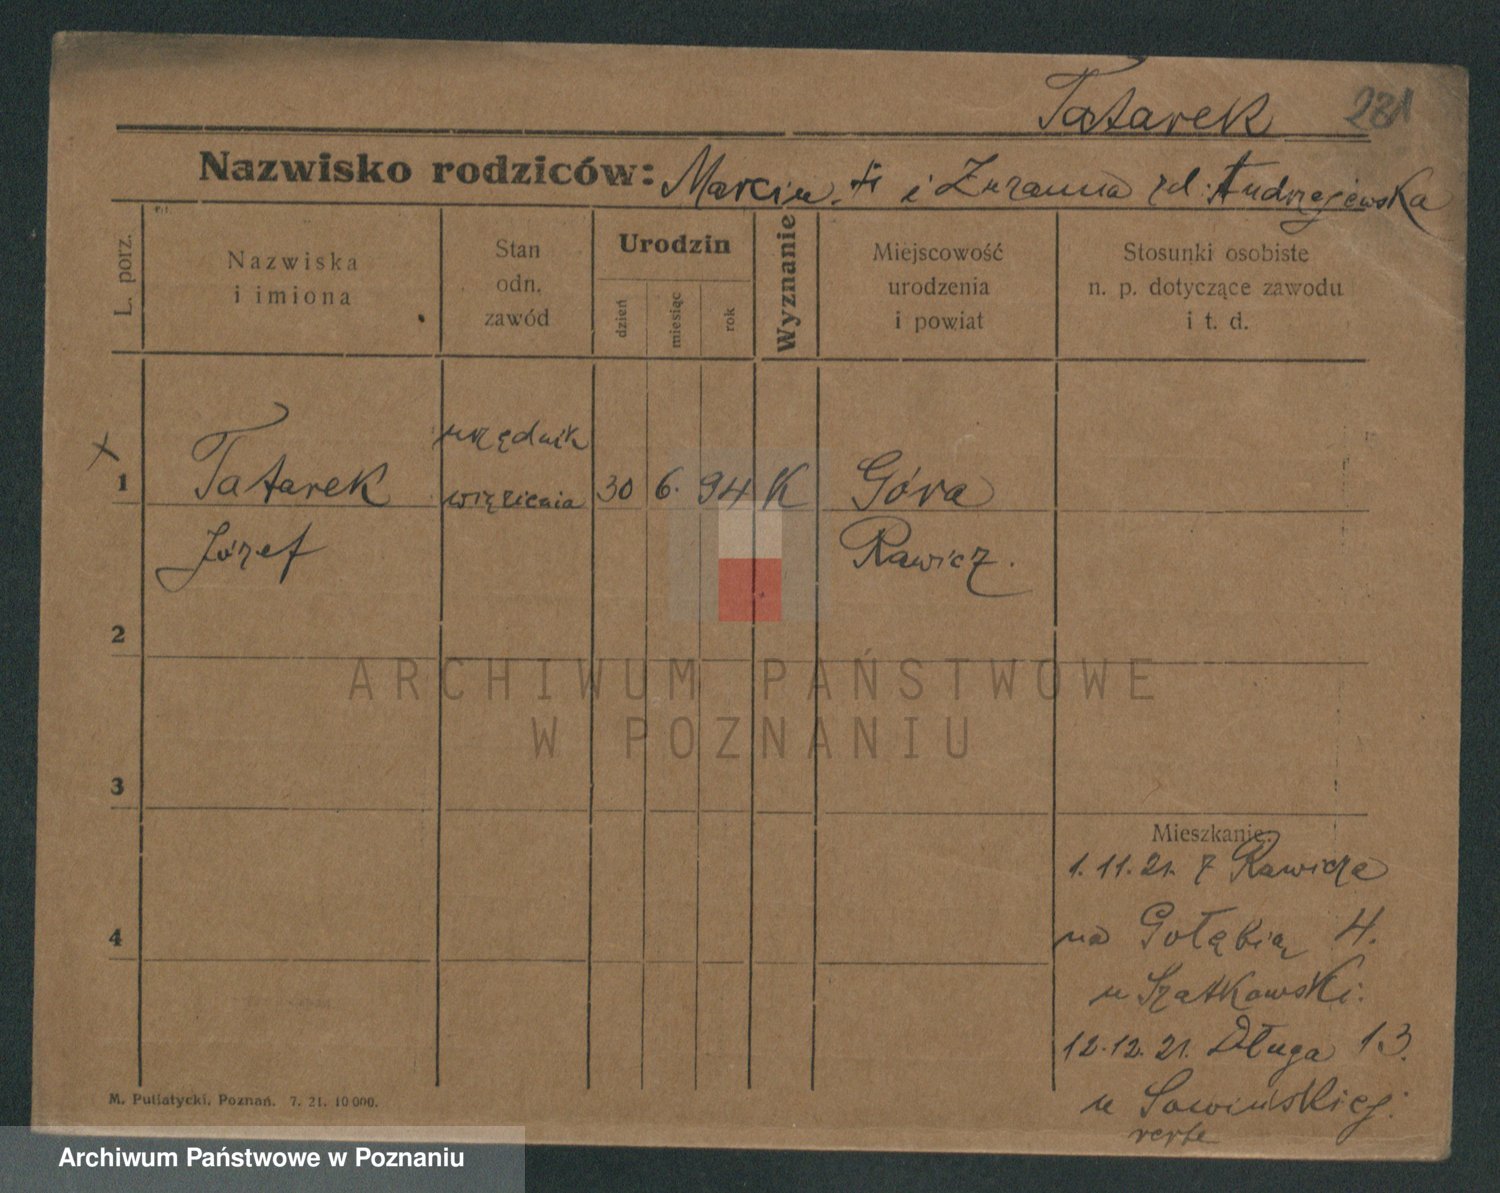 Tatarek 231
Nazwisko rodziców: Marcin i Zuzanna zd. Andrzejewska
L. porz.
Nazwiska
i imiona
Stan
odn.
zawód
Urodzin
dzień
miesiąc
rok
Wyznanie
Miejscowość
urodzenia
i powiat
Stosunki osobiste
n. p. dotyczące zawodu
i t. d.
x
1 Tatarek urzędnik więzienia 30 6. 94 K Góra
Józef Rawicz.
2
3
4
ARCHIWUM PAŃSTWOWE
W POZNANIU
Mieszkanie:
1.11.21. z Rawicza
na Gołębią 4.
u Szatkowski.
12.12.21. Długa 13.
u Sowińskiej.
verte
M. Putiatycki, Poznań. 7. 21. 10 000.
Archiwum Państwowe w Poznaniu